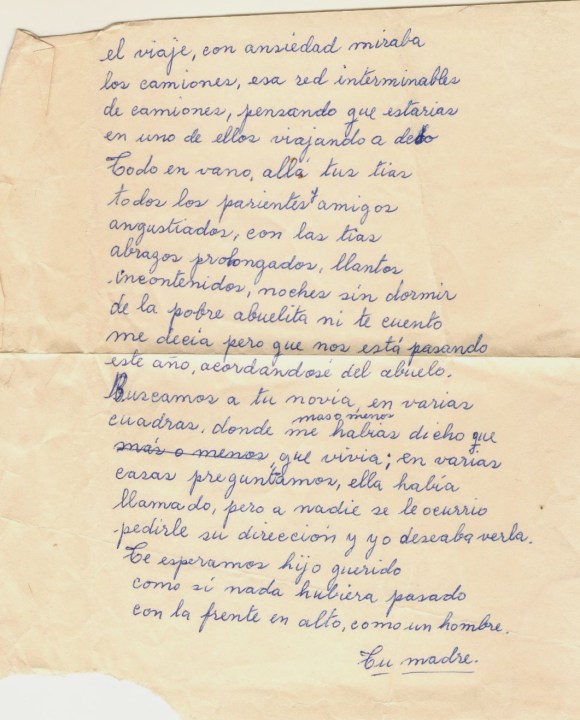 el viaje, con ansiedad miraba
los camiones, esa red interminables
de camiones, pensando que estarias
en uno de ellos viajando a dedo
Todo en vano, allá tus tias
todos los parientes y amigos
angustiados, con las tías
abrazos prolongados, llantos
incontenidos, noches sin dormir
de la pobre abuelita ni te cuento
me decía pero que nos está pasando
este año, acordandosé del abuelo.
Buscamos a tu novia, en varias
cuadras, donde mas o menos me habias dicho que
más o menos, que vivia; en varias
casas preguntamos, ella había
llamado, pero a nadie se le ocurrio
pedirle su dirección y yo deseaba verla.
Te esperamos hijo querido
como si nada hubiera pasado
con la frente en alto, como un hombre.
Tu madre.